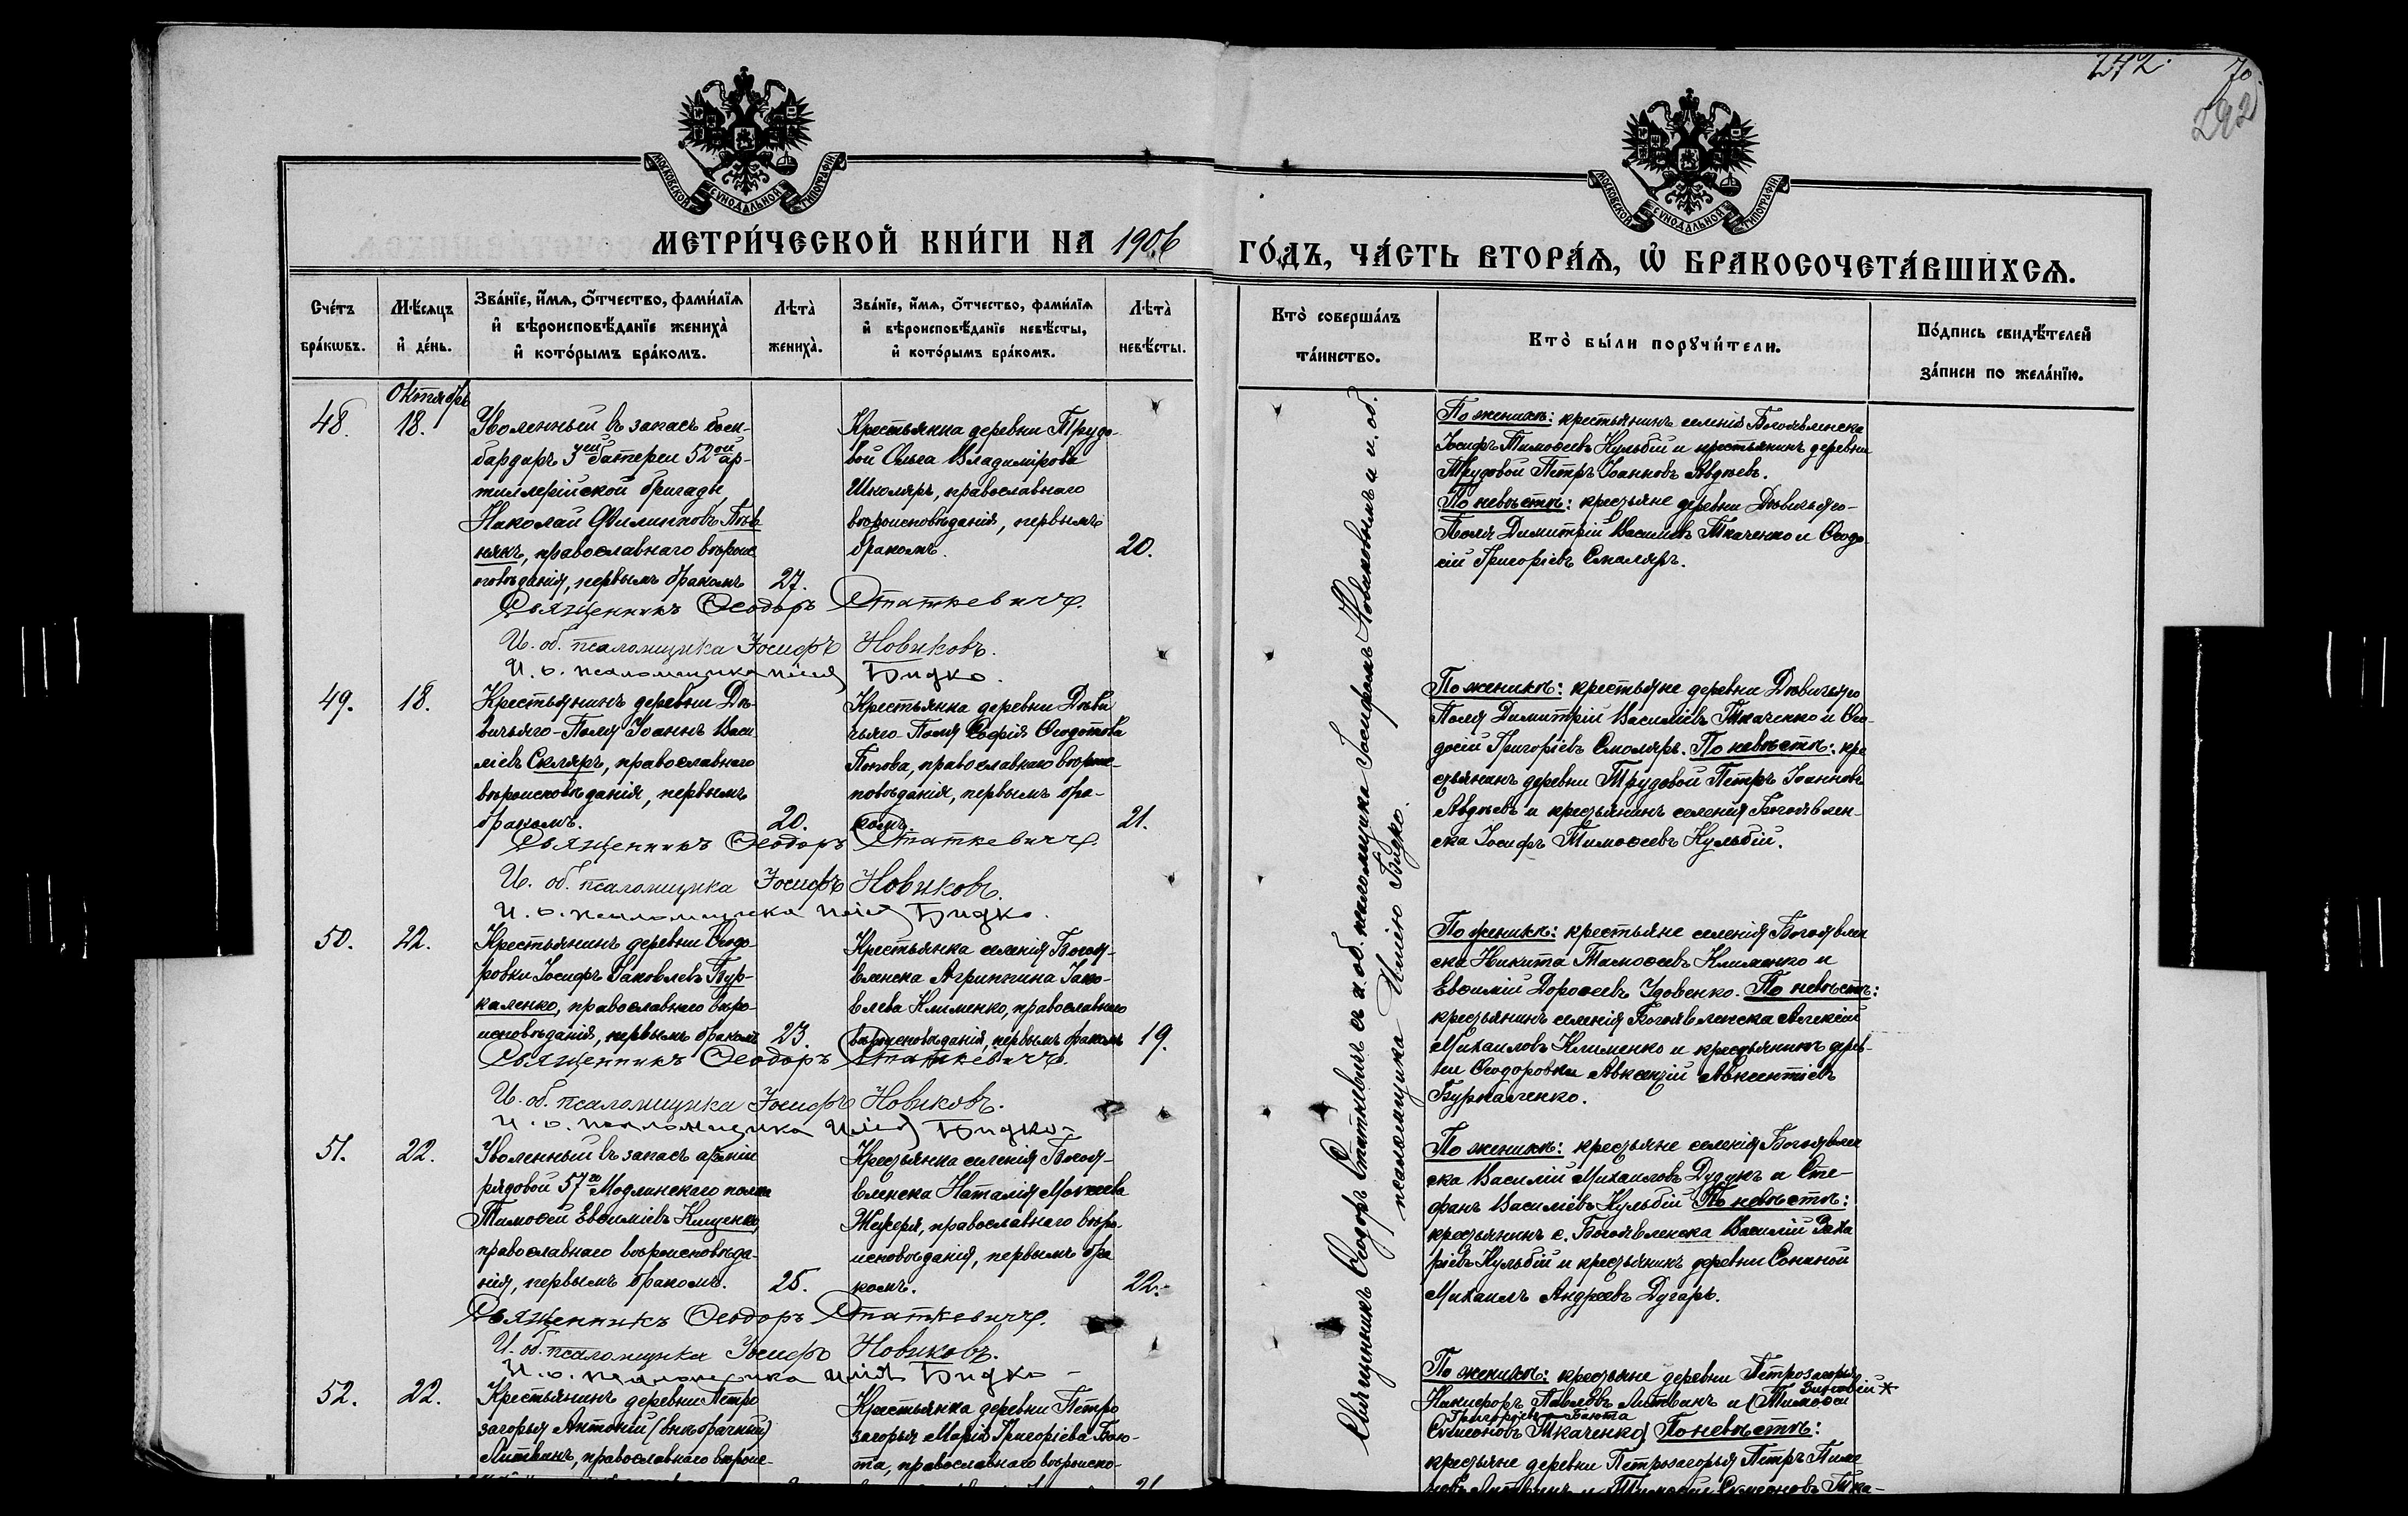 242.
70.
292
МОСКОВСКОЙ СѴНОДАЛЬНОЙ ТИПОГРАФІИ
МОСКОВСКОЙ СѴНОДАЛЬНОЙ ТИПОГРАФІИ
МЕТРИ́ЧЕСКОЙ КНИ́ГИ НА 1906
ГО́ДЪ, ЧА́СТЬ ВТОРА́Ѧ, Ѡ҆ БРАКОСОЧЕТА́ВШИХСѦ.
Сче́тъ бра́кѡвъ.
Мѣ́сѧцъ и҆ де́нь.
Зва́нїе, и҆́мѧ, ѻ҆́тчество, фами́лїѧ
и҆ вѣроисповѣ́данїе жениха̀
и҆ кото́рымъ бра́комъ.
Лѣта̀ жениха̀.
Зва́нїе, и҆́мѧ, ѻ҆́тчество, фами́лїѧ
и҆ вѣроисповѣ́данїе невѣ́сты,
и҆ кото́рымъ бра́комъ.
Лѣта̀ невѣ́сты.
Кто̀ соверша́лъ
та́инство.
Кто̀ бы́ли порꙋчи́тели.
По́дпись свидѣ́телей
за́писи по жела́нїю.
Октябрь
48.
18.
Уволенный въ запасъ бом-
бардиръ 3ей батереи 52ой ар-
тиллерійской бригады,
Николай Филипповъ
православнаго вѣроис
повѣданія, первымъ бракомъ
27.
Крестьянка деревни Трудо-
вой Ольга Владимірова
Школяръ, православнаго
вѣроисповѣданія, первымъ
бракомъ.
20.
По женихѣ: крестьянинъ селенія Богоявленска
Іосифъ Тимоѳеевъ Кульбій и крестьянинъ деревни
Трудовой Петръ Іоанновъ Авдѣевъ.
По невѣстѣ: крестьяне деревни Дѣвичьяго-
Поля Димитрій Василіевъ Ткаченко и Ѳеодо-
сій Григоріевъ Смоляръ.
Священникъ Ѳеодоръ Статкевичъ.
И. об. псаломщика Іосифъ Новиковъ.
И. о. псаломщика Илія Бидко.
49.
18.
Крестьянинъ деревни Дѣ-
вичьяго-Поля Іоаннъ Васи
ліевъ Скляръ, православнаго
вѣроисповѣданія, первымъ
бракомъ.
20.
Крестьянка деревни Дѣви
чьяго-Поля Софія Ѳеодотова
Попова, православнаго вѣроис-
повѣданія, первымъ бра-
комъ.
21.
По женихѣ: крестьяне деревни Дѣвичьяго
Поля Димитрій Василіевъ Ткаченко и Ѳео-
досій Григоріевъ Смоляръ. По невѣстѣ: кре
стьянинъ деревни Трудовой Петръ Іоанновъ
Авдѣевъ и крестьянинъ селенія Богоявлен-
ска Іосифъ Тимоѳеевъ Кульбій.
Священникъ Ѳеодоръ Статкевичъ.
И. об. псаломщика Іосифъ Новиковъ.
И. о. псаломщика Илія Бидко.
50.
22.
Крестьянинъ деревни Ѳеодо-
ровки Іосифъ Іаковлевъ Бур-
каленко, православнаго вѣро-
исповѣданія, первымъ бракомъ
23.
Крестьянка селенія Богоя-
вленска Агриппина Іако-
влева Клименко, православнаго
вѣроисповѣданія, первымъ бракомъ
19.
По женихѣ: крестьяне селенія Богоявлен
ска Никита Тимоѳеевъ Клименко и
Евѳимій Дороѳеевъ Удовенко. По невѣстѣ:
крестьянинъ селенія Богоявленска Алексій
Михаиловъ Клименко и крестьянинъ дерев-
ни Ѳеодоровки Авксентій Авксентіевъ
Буркаленко.
Священникъ Ѳеодоръ Статкевичъ.
И. об. псаломщика Іосифъ Новиковъ.
И. о. псаломщика Илія Бидко.
51.
22.
Уволенный въ запасъ арміи
рядовой 57го Модлинскаго полка
Тимоѳей Евѳиміевъ Кищенко,
православнаго вѣроисповѣда-
нія, первымъ бракомъ.
25.
Крестьянка селенія Богоя-
вленска Наталія Моѵсеева
православнаго вѣро-
исповѣданія, первымъ бра
комъ.
22.
По женихѣ: крестьяне селенія Богоявлен
ска Василій Михаиловъ Дудукъ и Сте-
фанъ Василіевъ Кульбій. По невѣстѣ:
крестьянинъ с. Богоявленска Василій Заха
ріевъ Кульбій и крестьянинъ деревни
Михаилъ Андреевъ Дугаръ.
Священникъ Ѳеодоръ Статкевичъ.
И. об. псаломщика Іосифъ Новиковъ.
И. о. псаломщика Илія Бидко
52.
22.
Крестьянинъ деревни Петро
загорья Антоній (внѣбрачный)
Литвинъ, православнаго вѣроис-
Крестьянка деревни Петро
загорья Марія Григоріева Баю-
та, православнаго вѣроиспо-
21
По женихѣ: крестьяне деревни Петрозагорья
Никифоръ Павловъ Литвинъ и (Тимоѳей Зиновій *
Григоріевъ Баюта
Симеоновъ Ткаченко) По невѣстѣ:
крестьяне деревни Петрозагорья Петръ
Литвинъ и Тимоѳей Симеоновъ Тка-
Священникъ Ѳеодоръ Статкевичъ съ и. об. псаломщика Іосифомъ Новиковымъ и и. об.
псаломщика Иліею Бидко.